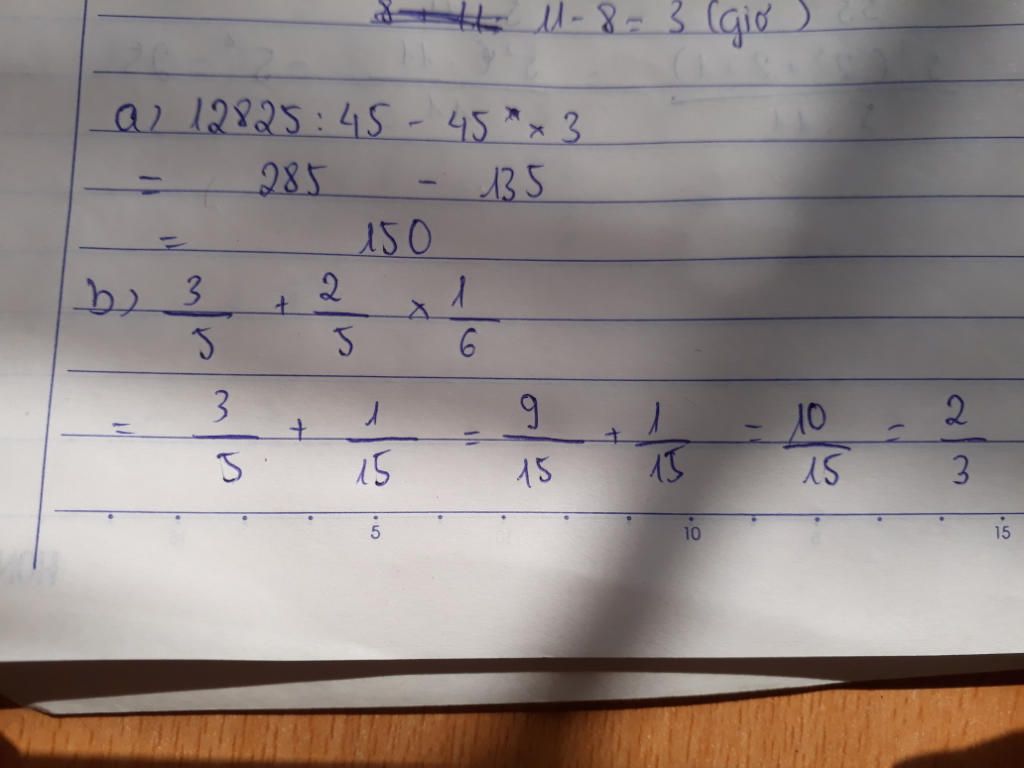 11 - 8 = 3 (giờ)
a) 12825 : 45 - 45 × 3
= 285 - 135
= 150
b) 3/5 + 2/5 × 1/6
= 3/5 + 1/15 = 9/15 + 1/15 = 10/15 = 2/3
5 10 15